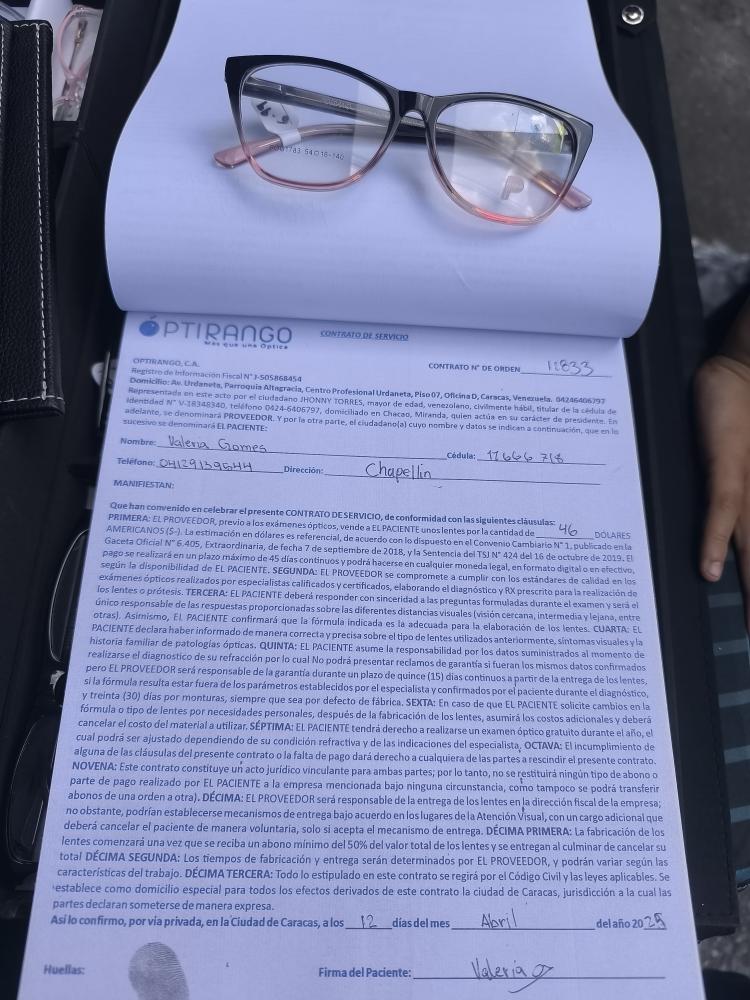 PO01783 54□18-140
ÓPTIRANGO
Más que una Óptica
CONTRATO DE SERVICIO
OPTIRANGO, C.A.
CONTRATO N° DE ORDEN 11833
Registro de Información Fiscal N° J-505868454
Domicilio: Av. Urdaneta, Parroquia Altagracia, Centro Profesional Urdaneta, Piso 07, Oficina D, Caracas, Venezuela. 04246406797
Representada en este acto por el ciudadano JHONNY TORRES, mayor de edad, venezolano, civilmente hábil, titular de la cédula de
identidad N° V-18348340, teléfono 0424-6406797, domiciliado en Chacao, Miranda, quien actúa en su carácter de presidente. En
adelante, se denominará PROVEEDOR. Y por la otra parte, el ciudadano(a) cuyo nombre y datos se indican a continuación, que en lo
sucesivo se denominará EL PACIENTE:
Nombre: Valeria Gomes Cédula: 17666718
Teléfono: 04129139544 Dirección: Chapellin
MANIFIESTAN:
Que han convenido en celebrar el presente CONTRATO DE SERVICIO, de conformidad con las siguientes cláusulas:
PRIMERA: EL PROVEEDOR, previo a los exámenes ópticos, vende a EL PACIENTE unos lentes por la cantidad de 46 DÓLARES
AMERICANOS ($-). La estimación en dólares es referencial, de acuerdo con lo dispuesto en el Convenio Cambiario N° 1, publicado en la
Gaceta Oficial N° 6.405, Extraordinaria, de fecha 7 de septiembre de 2018, y la Sentencia del TSJ N° 424 del 16 de octubre de 2019. El
pago se realizará en un plazo máximo de 45 días continuos y podrá hacerse en cualquier moneda legal, en formato digital o en efectivo,
según la disponibilidad de EL PACIENTE. SEGUNDA: EL PROVEEDOR se compromete a cumplir con los estándares de calidad en los
exámenes ópticos realizados por especialistas calificados y certificados, elaborando el diagnóstico y RX prescrito para la realización de
los lentes o prótesis. TERCERA: EL PACIENTE deberá responder con sinceridad a las preguntas formuladas durante el examen y será el
único responsable de las respuestas proporcionadas sobre las diferentes distancias visuales (visión cercana, intermedia y lejana, entre
otras). Asimismo, EL PACIENTE confirmará que la fórmula indicada es la adecuada para la elaboración de los lentes. CUARTA: EL
PACIENTE declara haber informado de manera correcta y precisa sobre el tipo de lentes utilizados anteriormente, síntomas visuales y la
historia familiar de patologías ópticas. QUINTA: EL PACIENTE asume la responsabilidad por los datos suministrados al momento de
realizarse el diagnostico de su refracción por lo cual No podrá presentar reclamos de garantía si fueran los mismos datos confirmados
pero EL PROVEEDOR será responsable de la garantía durante un plazo de quince (15) días continuos a partir de la entrega de los lentes,
si la fórmula resulta estar fuera de los parámetros establecidos por el especialista y confirmados por el paciente durante el diagnóstico,
y treinta (30) días por monturas, siempre que sea por defecto de fábrica. SEXTA: En caso de que EL PACIENTE solicite cambios en la
fórmula o tipo de lentes por necesidades personales, después de la fabricación de los lentes, asumirá los costos adicionales y deberá
cancelar el costo del material a utilizar. SÉPTIMA: EL PACIENTE tendrá derecho a realizarse un examen óptico gratuito durante el año, el
cual podrá ser ajustado dependiendo de su condición refractiva y de las indicaciones del especialista. OCTAVA: El incumplimiento de
alguna de las cláusulas del presente contrato o la falta de pago dará derecho a cualquiera de las partes a rescindir el presente contrato.
NOVENA: Este contrato constituye un acto jurídico vinculante para ambas partes; por lo tanto, no se restituirá ningún tipo de abono o
parte de pago realizado por EL PACIENTE a la empresa mencionada bajo ninguna circunstancia, como tampoco se podrá transferir
abonos de una orden a otra). DÉCIMA: EL PROVEEDOR será responsable de la entrega de los lentes en la dirección fiscal de la empresa;
no obstante, podrían establecerse mecanismos de entrega bajo acuerdo en los lugares de la Atención Visual, con un cargo adicional que
deberá cancelar el paciente de manera voluntaria, solo si acepta el mecanismo de entrega. DÉCIMA PRIMERA: La fabricación de los
lentes comenzará una vez que se reciba un abono mínimo del 50% del valor total de los lentes y se entregan al culminar de cancelar su
total DÉCIMA SEGUNDA: Los tiempos de fabricación y entrega serán determinados por EL PROVEEDOR, y podrán variar según las
características del trabajo. DÉCIMA TERCERA: Todo lo estipulado en este contrato se regirá por el Código Civil y las leyes aplicables. Se
establece como domicilio especial para todos los efectos derivados de este contrato la ciudad de Caracas, jurisdicción a la cual las
partes declaran someterse de manera expresa.
Así lo confirmo, por vía privada, en la Ciudad de Caracas, a los 12 días del mes Abril del año 2025
Huellas: Firma del Paciente: Valeria G